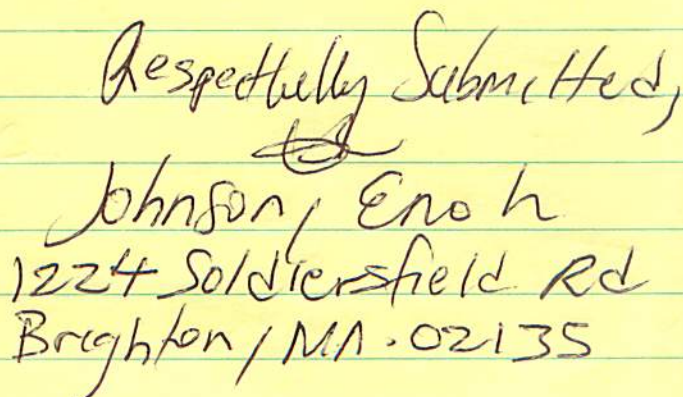 Respectfully Submitted,
Johnson, Enoh
1224 Soldiersfield Rd
Brighton, MA. 02135